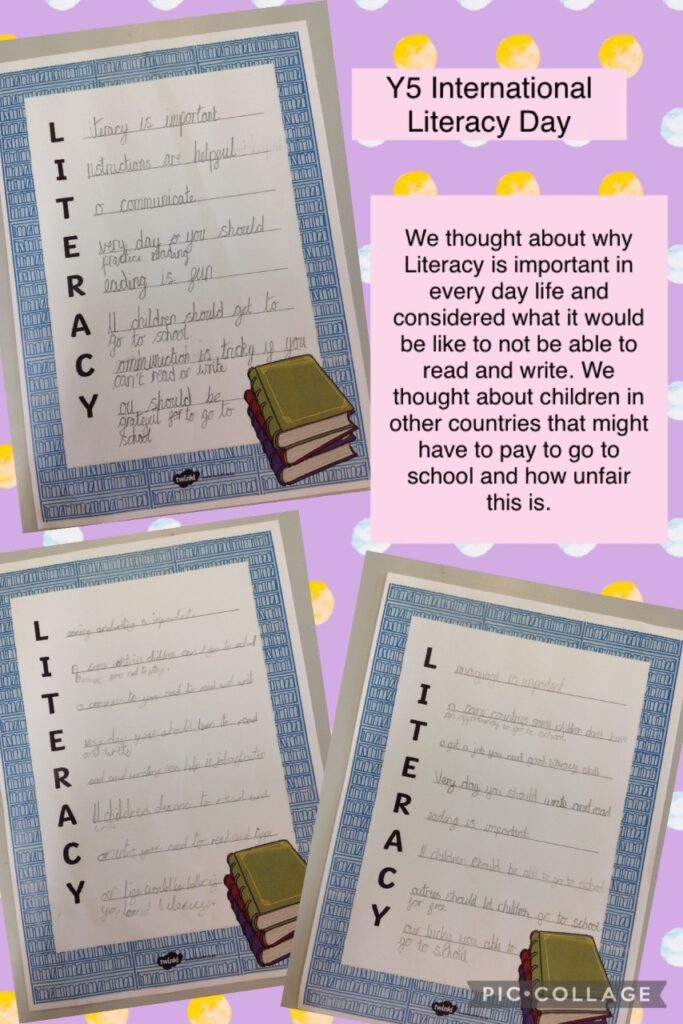 Y5 International
Literacy Day
We thought about why
Literacy is important in
every day life and
considered what it would
be like to not be able to
read and write. We
thought about children in
other countries that might
have to pay to go to
school and how unfair
this is.
L iteracy is important
I nstructions are helpful
T o communicate
E very day you should
practice reading
R eading is fun
A ll children should get to
go to school
C ommunication is tricky if you
can't read or write
Y ou should be
grateful for to go to
school
twinkl
L earning and writing is important
I n some children can't go to school
T o you need to read and write
E very day you should learn to read
and write
R ead and writing
A ll children deserve to read and
C you need to read and type
Y our life would be
you Literacy.
twinkl
L anguage is important
I n some countries some children don't have
an opportunity to go to school
T o get a job you need good literacy skill
E very day you should write and read
R eading is important
A ll children should be able to go to school
C ountries should let children go to school
for free
Y our lucky you able to
go to school
twinkl
PIC•COLLAGE